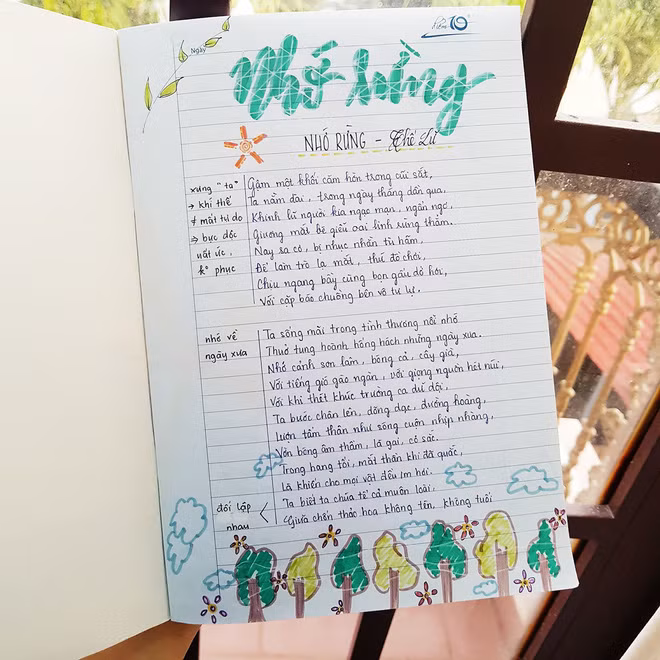 Ngày
Nhớ rừng
NHỚ RỪNG - Thế Lữ
xưng "ta"
→ khí thế
≠ mất tự do
⇒ bực dọc
uất ức,
k° phục
Gậm một khối căm hờn trong cũi sắt,
Ta nằm dài, trong ngày tháng dần qua.
Khinh lũ người kia ngạo mạn, ngẩn ngơ,
Giương mắt bé giễu oai linh rừng thẳm.
Nay sa cơ, bị nhục nhằn tù hãm,
Để làm trò lạ mắt, thứ đồ chơi,
Chịu ngang bầy cùng bọn gấu dở hơi,
Với cặp báo chuồng bên vô tư lự.
nhớ về
ngày xưa
Ta sống mãi trong tình thương nỗi nhớ
Thuở tung hoành hống hách những ngày xưa.
Nhớ cảnh sơn lâm, bóng cả, cây già,
Với tiếng gió gào ngàn, với giọng nguồn hét núi,
Với khi thét khúc trường ca dữ dội,
Ta bước chân lên, dõng dạc, đường hoàng,
Lượn tấm thân như sóng cuộn nhịp nhàng,
Vờn bóng âm thầm, lá gai, cỏ sắc.
Trong hang tối, mắt thần khi đã quắc,
Là khiến cho mọi vật đều im hơi.
đối lập
nhau
Ta biết ta chúa tể cả muôn loài,
Giữa chốn thảo hoa không tên, không tuổi